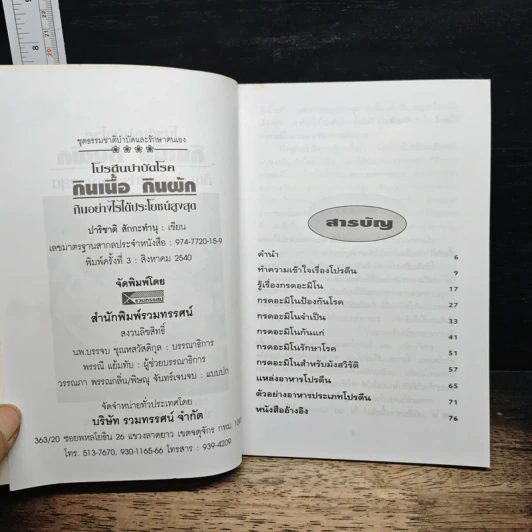 ชุดธรรมชาติบำบัดและรักษาตนเอง
โปรตีนบำบัดโรค
กินเนื้อ กินผัก
กินอย่างไรได้ประโยชน์สูงสุด
ปาริชาติ สักกะทำนุ : เขียน
เลขมาตรฐานสากลประจำหนังสือ : 974-7720-15-9
พิมพ์ครั้งที่ 3 : สิงหาคม 2540
จัดพิมพ์โดย
รวมทรรศน์
สำนักพิมพ์รวมทรรศน์
สงวนลิขสิทธิ์
นพ.บรรจบ ชุณหสวัสดิกุล : บรรณาธิการ
พรรณี แย้มทับ : ผู้ช่วยบรรณาธิการ
วรรณภา พรรณกลิ่น/พิษณุ จันทร์เจนจบ : แบบปก
จัดจำหน่ายทั่วประเทศโดย
บริษัท รวมทรรศน์ จำกัด
363/20 ซอยพหลโยธิน 26 แขวงลาดยาว เขตจตุจักร กทม.
โทร. 513-7670, 930-1165-66 โทรสาร : 939-4209
สารบัญ
คำนำ 6
ทำความเข้าใจเรื่องโปรตีน 9
รู้เรื่องกรดอะมิโน 17
กรดอะมิโนป้องกันโรค 27
กรดอะมิโนจำเป็น 33
กรดอะมิโนกันแก่ 41
กรดอะมิโนรักษาโรค 51
กรดอะมิโนสำหรับมังสวิรัติ 57
แหล่งอาหารโปรตีน 65
ตัวอย่างอาหารประเภทโปรตีน 71
หนังสืออ้างอิง 76